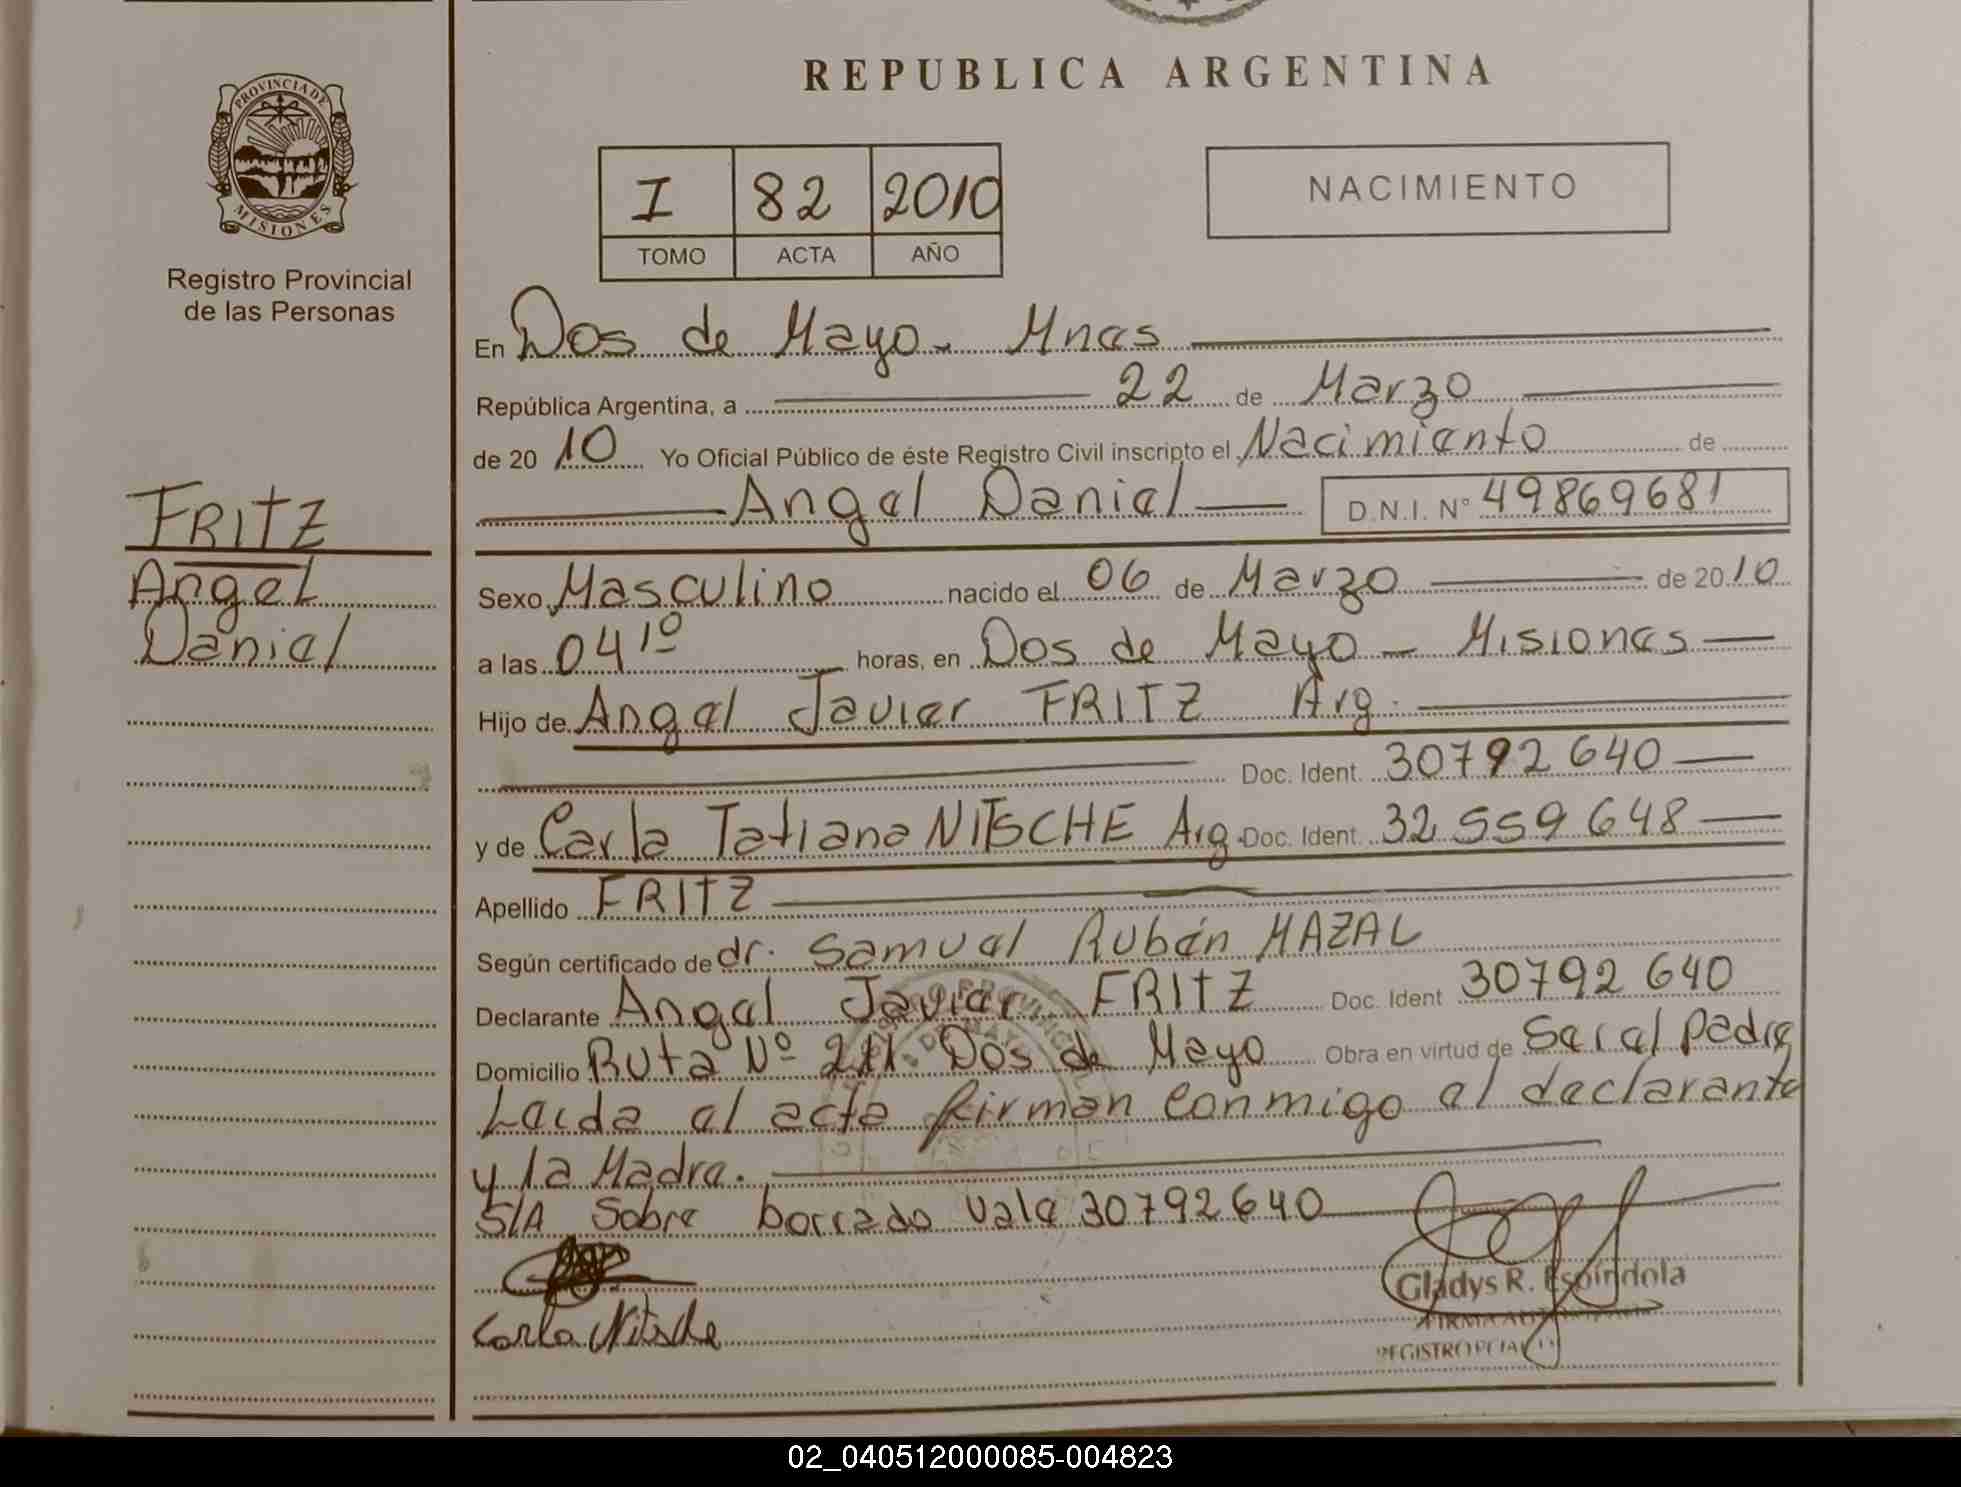 REPUBLICA ARGENTINA
PROVINCIA DE
MISIONES
Registro Provincial
de las Personas
I 82 2010
TOMO ACTA AÑO
NACIMIENTO
FRITZ
Angel
Daniel
En Dos de Mayo - Mnes
República Argentina, a 22 de Marzo
de 20 10 Yo Oficial Público de éste Registro Civil inscripto el Nacimiento de
Angel Daniel D.N.I. Nº 49869681
Sexo Masculino nacido el 06 de Marzo de 20 10
a las 04 10 horas, en Dos de Mayo - Misiones
Hijo de Angel Javier FRITZ Arg.
Doc. Ident. 30792640
y de Carla Tatiana NITSCHE Arg. Doc. Ident. 32559648
Apellido FRITZ
Según certificado de dr. Samuel Rubén MAZAL
Declarante Angel Javier FRITZ Doc. Ident 30792640
Domicilio Ruta Nº 211. Dos de Mayo Obra en virtud de Ser el padre
Leida el acta firman conmigo el declarante
y la Madre.
S/A Sobre borrado vale 30792640
Carla Nitsche
Gladys R. Espindola
REGISTRO PCIAL
02_040512000085-004823